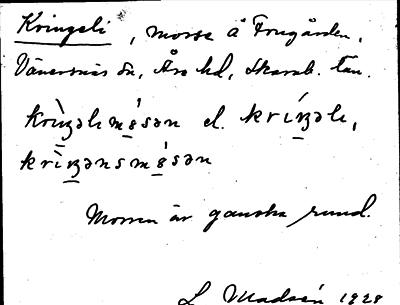 Kringeli, mosse å Frugården,
Vänersnäs sn, Åse hd, Skarab. län.
krìŋəlɩmʂ́sən el. kríŋəlɩ,
krìŋənsmʂ́sən
Mossen är ganska rund.
L Madsén 1928